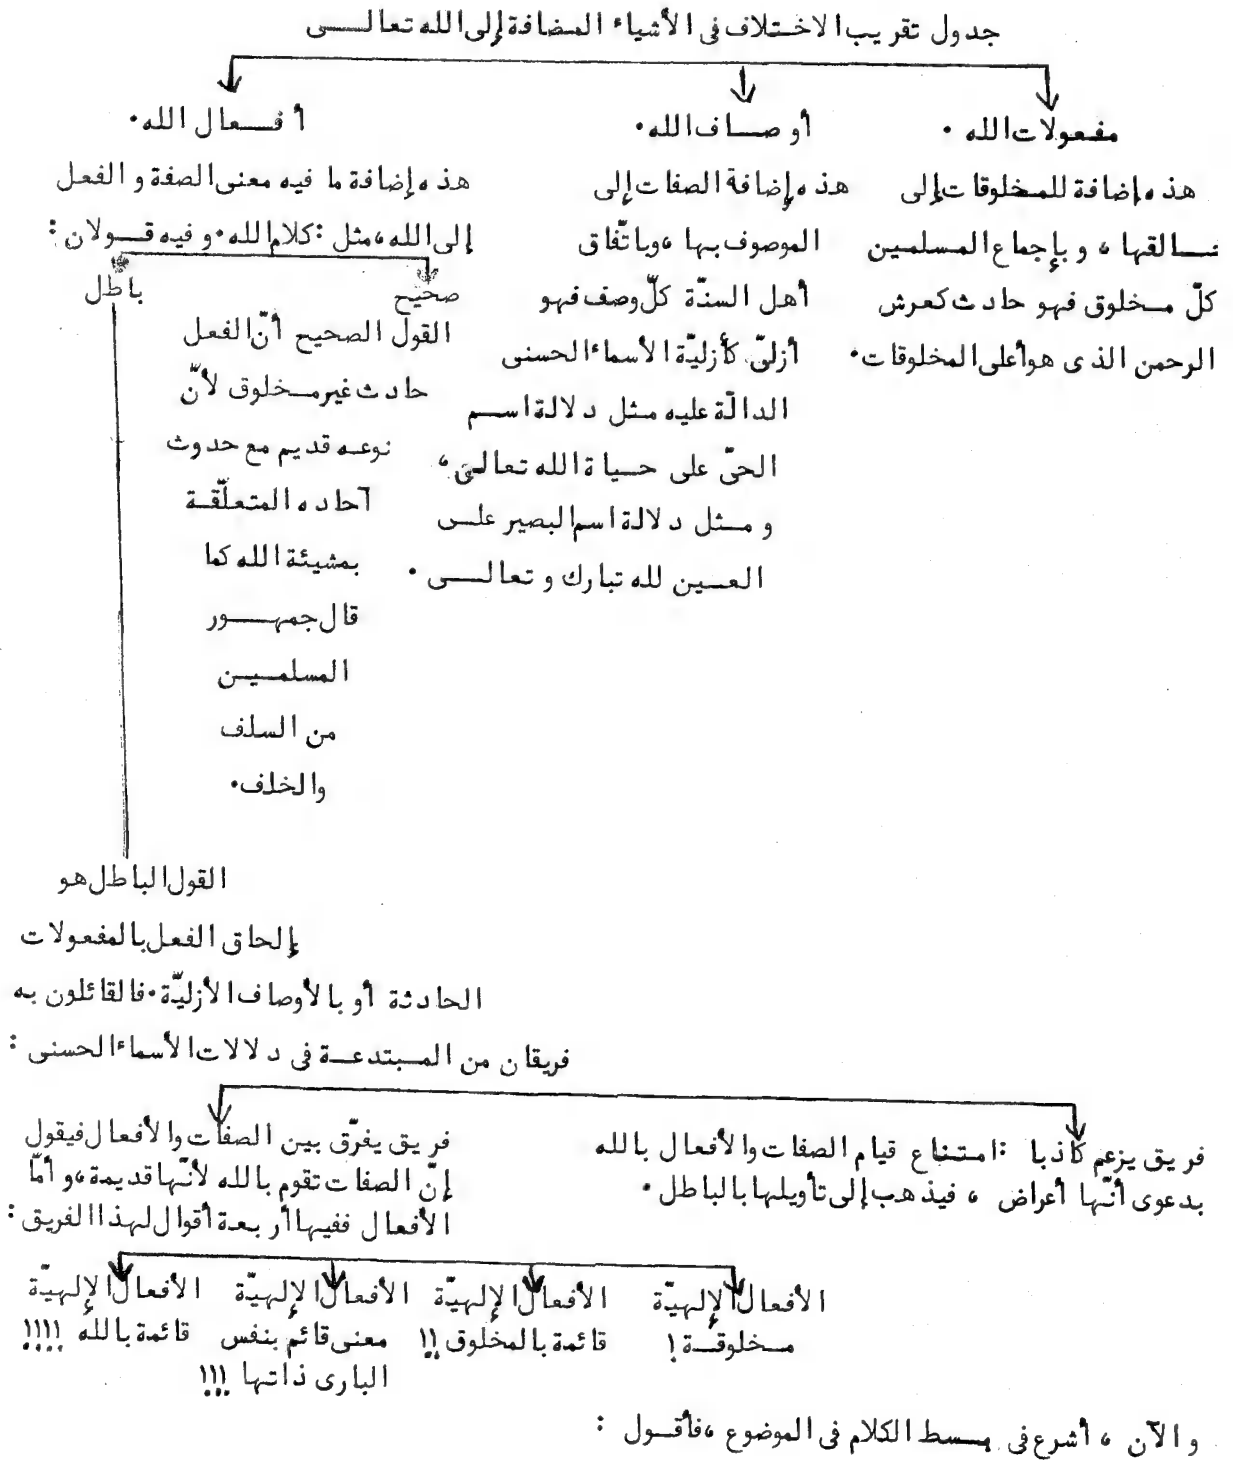 جدول تقريب الاختلاف في الأشياء المضافة إلى الله تعالى
مفعولات الله .
هذه إضافة للمخلوقات إلى
خالقها ، و بإجماع المسلمين
كلّ مخلوق فهو حادث كعرش
الرحمن الذى هو أعلى المخلوقات.
أوصاف الله .
هذه إضافة الصفات إلى
الموصوف بها ، وباتّفاق
أهل السنّة كلّ وصف فهو
أزليّ كأزليّة الأسماء الحسنى
الدالّة عليه مثل دلالة اسم
الحيّ على حياة الله تعالى ،
و مثل دلالة اسم البصير على
العين لله تبارك و تعالى .
أفعال الله .
هذه إضافة ما فيه معنى الصفة و الفعل
إلى الله ، مثل : كلام الله . و فيه قولان :
صحيح
القول الصحيح أنّ الفعل
حادث غير مخلوق لأنّ
نوعه قديم مع حدوث
آحاده المتعلّقة
بمشيئة الله كما
قال جمهور
المسلمين
من السلف
والخلف .
باطل
القول الباطل هو
إلحاق الفعل بالمفعولات
الحادثة أو بالأوصاف الأزليّة . فالقائلون به
فريقان من المبتدعة في دلالات الأسماء الحسنى :
فريق يزعم كاذبا : امتناع قيام الصفات والأفعال بالله
بدعوى أنّها أعراض ، فيذهب إلى تأويلها بالباطل .
فريق يفرّق بين الصفات والأفعال فيقول
إنّ الصفات تقوم بالله لأنّها قديمة ، و أمّا
الأفعال ففيها أربعة أقوال لهذا الفريق :
الأفعال الإلهيّة
مخلوقة !
الأفعال الإلهيّة
قائمة بالمخلوق !!
الأفعال الإلهيّة
معنى قائم بنفس
البارى ذاتها !!!
الأفعال الإلهيّة
قائمة بالله !!!!
و الآن ، أشرع في بسط الكلام في الموضوع ، فأقول :